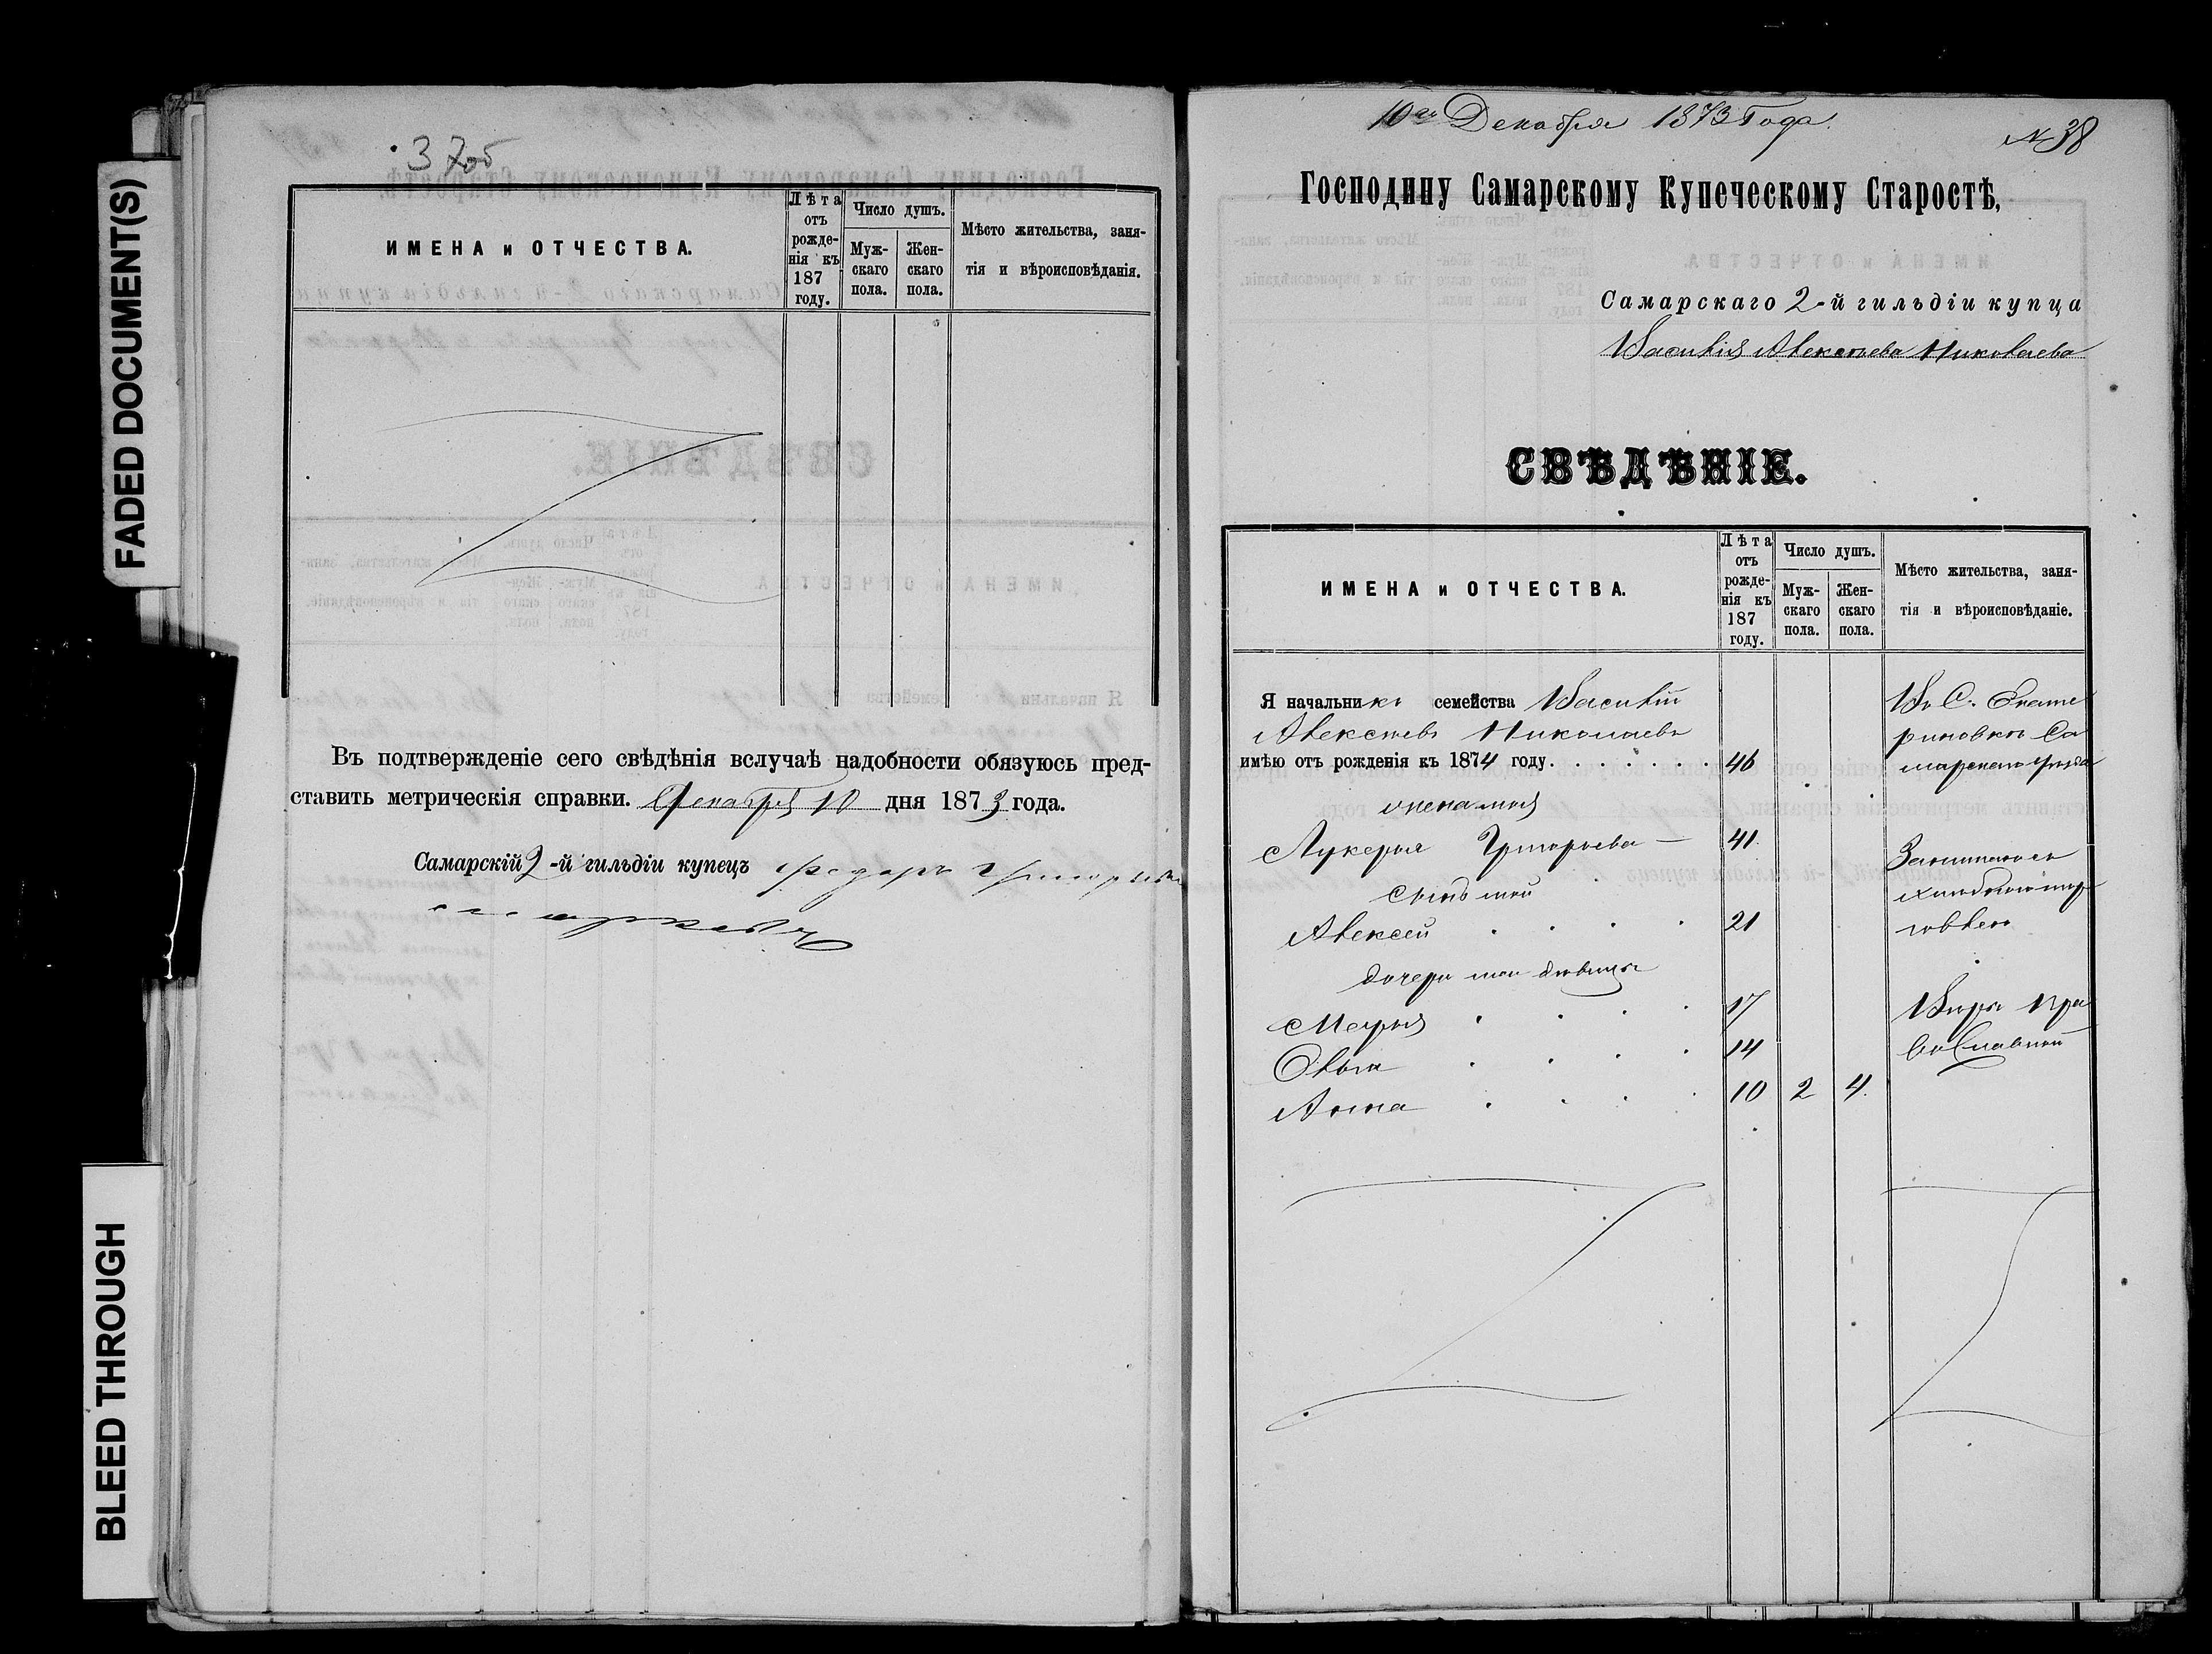 FADED DOCUMENT(S)
BLEED THROUGH
ИМЕНА и ОТЧЕСТВА.
Лѣта отъ рожденія къ 187 году.
Число душъ.
Мужскаго пола.
Женскаго пола.
Мѣсто жительства, заня-
тія и вѣроисповѣданія.
Въ подтвержденіе сего свѣдѣнія вслучаѣ надобности обязуюсь пред-
ставить метрическія справки. Декабря 10 дня 1873 года.
Самарскій 2-й гильдіи купецъ Федоръ
10го Декабря 1873 Года.
№ 38
Господину Самарскому Купеческому Старостѣ,
Самарскаго 2-й гильдіи купца
Василія Алексѣева Николаева
СВѢДѢНІЕ.
ИМЕНА и ОТЧЕСТВА.
Лѣта
отъ
рожде-
нія къ
187
году.
Число душъ.
Муж-
скаго
пола.
Жен-
скаго
пола.
Мѣсто жительства, заня-
тія и вѣроисповѣданіе.
Я начальникъ семейства Василій
Алексѣевъ Николаевъ
имѣю отъ рожденія къ 1874 году. 46
Въ С. Екате
риновкѣ Са
марскаго уѣзда
жена моя
Лукерья Григорьева 41
сынъ мой
Алексей 21
Занимаюсь
хлѣбною тор
говлею
дочери мои дѣвицы
Марья 17
Ольга 14
Анна 10 2 4.
Вѣры пра
вославной